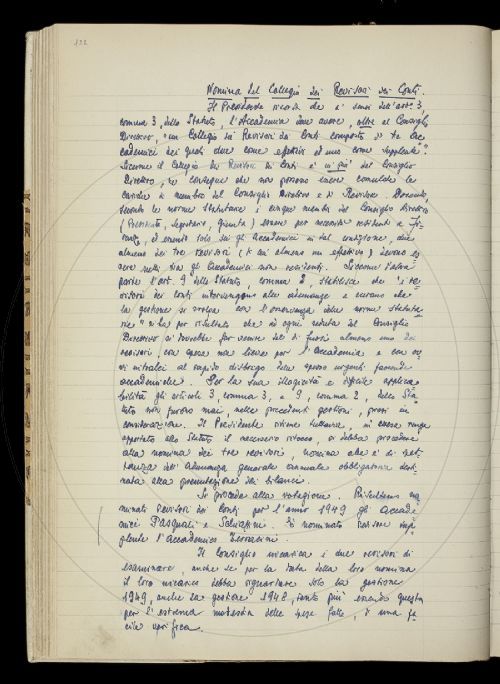 122
Nomina del Collegio dei Revisori dei Conti.
Il Presidente ricorda che a' sensi dell'art. 3,
comma 3, dello Statuto, l'Accademia deve avere, oltre al Consiglio
Direttivo, "un Collegio dei Revisori dei Conti composto di tre Ac-
cademici dei quali due come effettivi ed uno come supplente".
Siccome il Collegio dei Revisori dei Conti è "in più" del Consiglio
Direttivo, ne consegue che non possono essere cumulate le
cariche di membro del Consiglio Direttivo e di Revisore. Dovendo,
secondo le norme statutarie, i cinque membri del Consiglio Direttivo
(Presidente, Segretario, Giunta) essere per necessità residenti a Fi-
renze, ed essendo solo sei gli Accademici in tal condizione, due
almeno dei tre revisori (di cui almeno un effettivo) devono es-
sere scelti tra gli Accademici non residenti. Siccome d'altra
parte l'art. 9 dello Statuto, comma 2, stabilisce che "i re-
visori dei conti intervengono alle adunanze e curano che
la gestione si svolga con l'osservanza delle norme statuta-
rie" si ha per risultato che ad ogni seduta del Consiglio
Direttivo si dovrebbe far venire da di fuori almeno uno dei
revisori, con spese non lievi per l'Accademia e con
intralci al rapido disbrigo delle spesso urgenti faccende
accademiche. Per la sua illogicità e difficile applica-
bilità gli articoli 3, comma 3, e 9, comma 2, dello Sta-
tuto non furono mai, nelle precedenti gestioni, presi in
considerazione. Il Presidente ritiene tuttavia, in attesa venga
apportato allo Statuto il necessario ritocco, si debba procedere
alla nomina dei tre revisori, nomina che è di spet-
tanza dell'Adunanza generale annuale obbligatoria desti-
nata alla presentazione dei bilanci.
Si procede alla votazione. Risultano no-
minati Revisori dei Conti per l'anno 1949 gli Accade-
mici Pasquali e Salvatini. È nominato Revisore sup-
plente l'Accademico Terracini.
Il Consiglio incarica i due revisori di
esaminare, anche se per la data della loro nomina
il loro incarico debba riguardare solo la gestione
1949, anche la gestione 1948, tanto più essendo questa
per l'estrema modestia delle spese fatte, di una fa-
cile verifica.